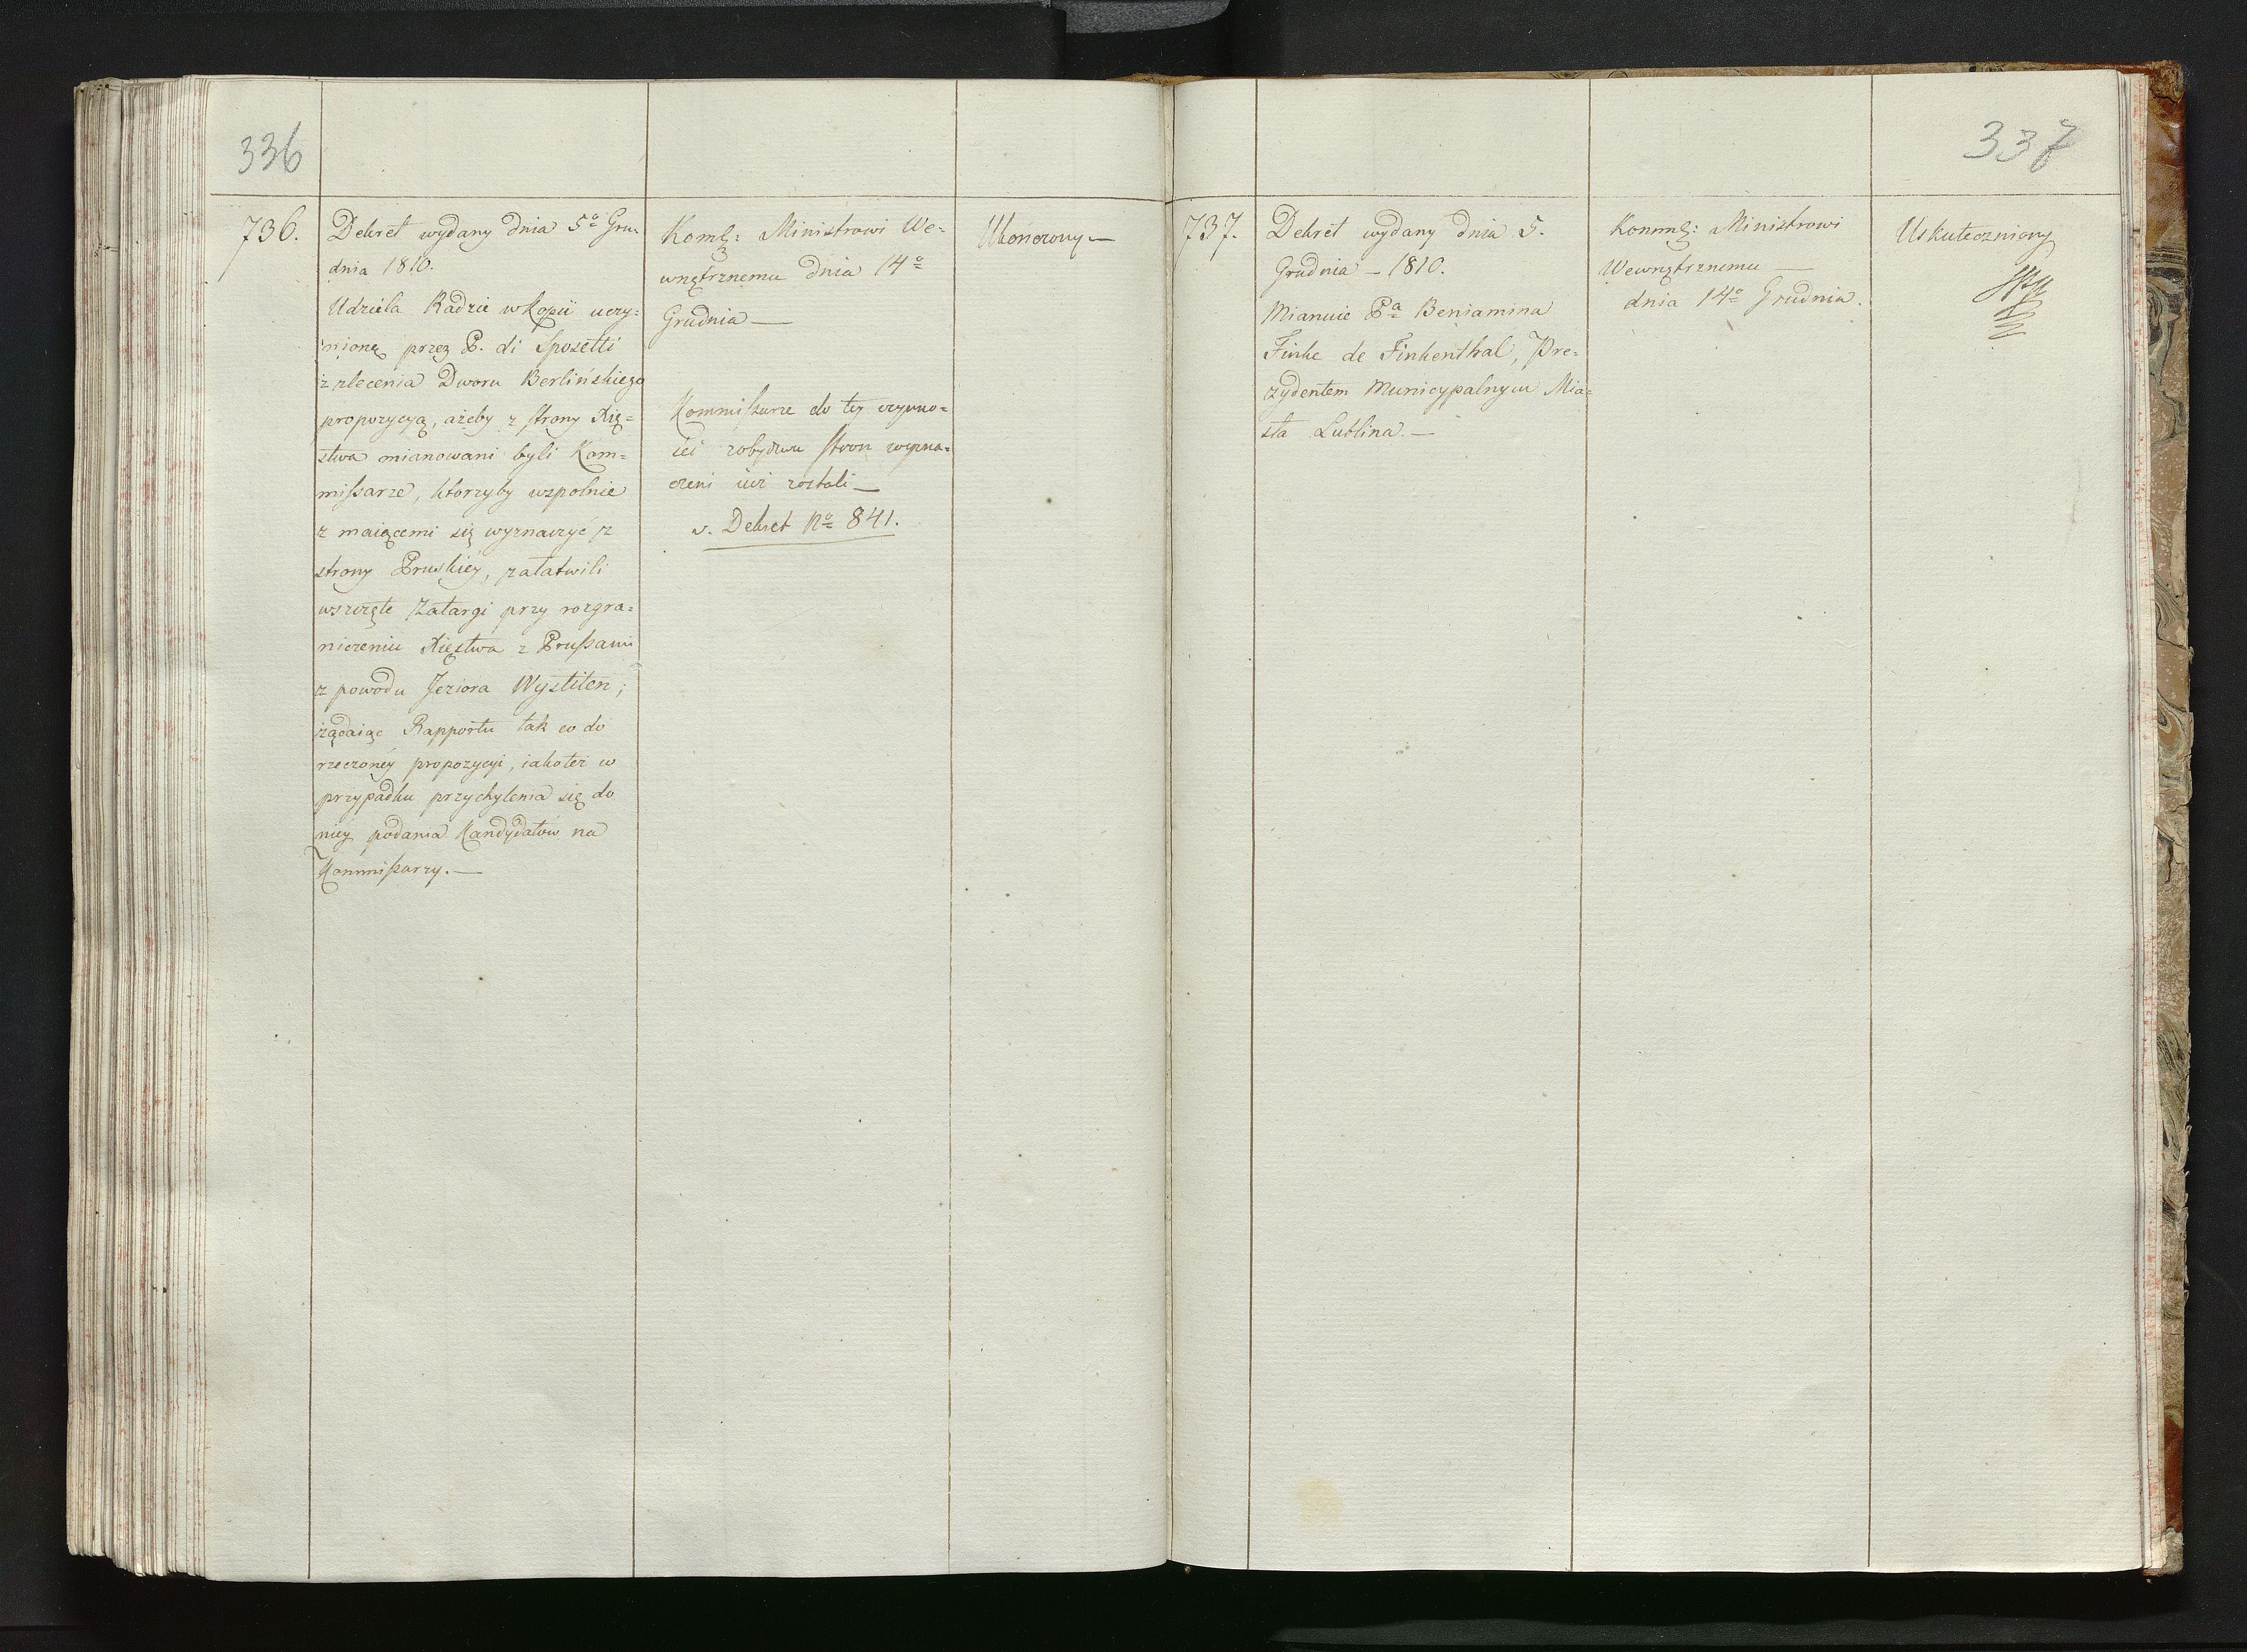 336
736.
Dekret wydany dnia 5º Gru-
dnia 1810.
Udziela Radzie w kopii uczy=
nioną przez P. di Sposetti
z zlecenia Dworu Berlińskiego
propozycyą, ażeby z strony Xię=
stwa mianowani byli Kom=
missarze, którzyby wspolnie
z maiącemi się wyznaczyć z
strony Pruskiéy, załatwili
wszczęte zatargi przy rozgra=
niczeniu Xięstwa z Prussami
z powodu Jeziora Wystiten;
żądaiąc Rapportu tak co do
rzeczonéy propozycyi, iakoteż w
przypadku przychylenia się do
niéy podania Kandydatów na
Kommissarzy. —
Komk: Ministrowi We-
wnętrznemu dnia 14º
Grudnia —
Kommissarze do tey czynno=
ści z obydwu stron wyzna=
czeni iuż zostali —
v. Dekret Nº 841.
Ukończony —
337
737.
Dekret wydany dnia 5.
Grudnia — 1810.
Mianuie Pª Beniamina
Finke de Finkenthal, Pre=
zydentem Municypalnym Mia=
sta Lublina. —
Kommk: Ministrowi
Wewnętrznemu —
dnia 14º Grudnia.
Uskuteczniony